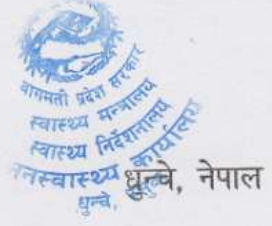 बागमती प्रदेश सरकार
स्वास्थ्य मन्त्रालय
स्वास्थ्य निर्देशनालय
नस्वास्थ्य कार्यालय
धुन्चे,
धुन्चे, नेपाल